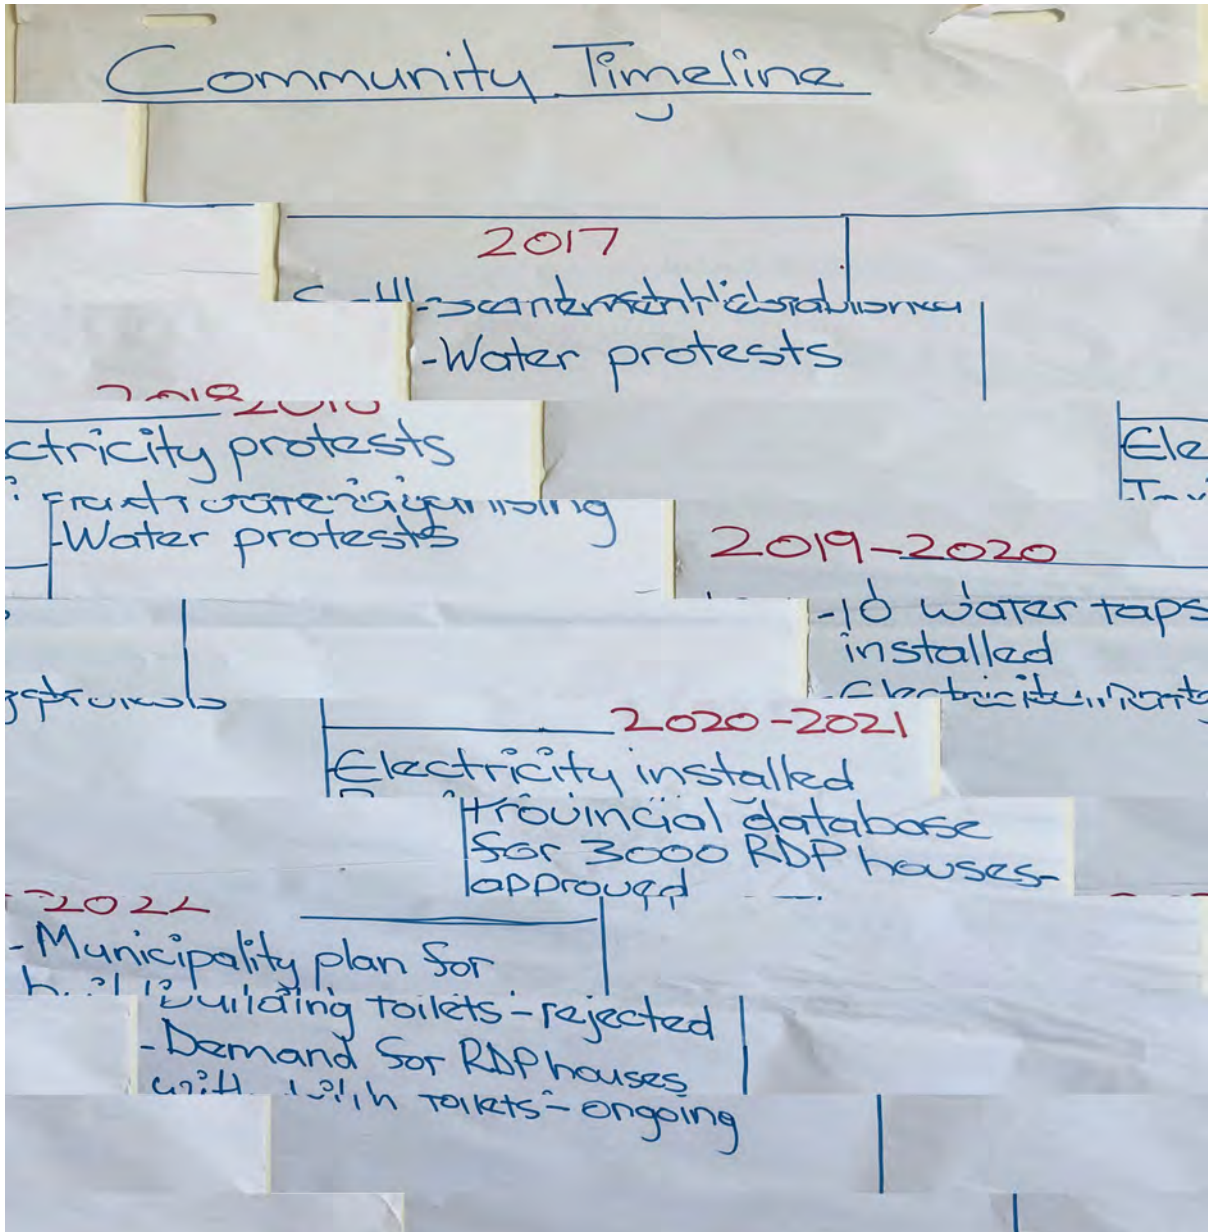 Community Timeline
2017
-Water protests
ctricity protests
Ele
-Water protests
2019-2020
-10 water taps
installed
2020-2021
Electricity installed
Provincial database
for 3000 RDP houses-
approved
-2022
-Municipality plan for
building toilets-rejected
-Demand for RDP houses
with toilets-ongoing